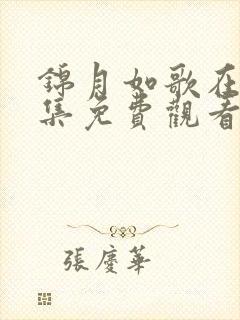 錦月如歌在
集免費觀看
張慶華